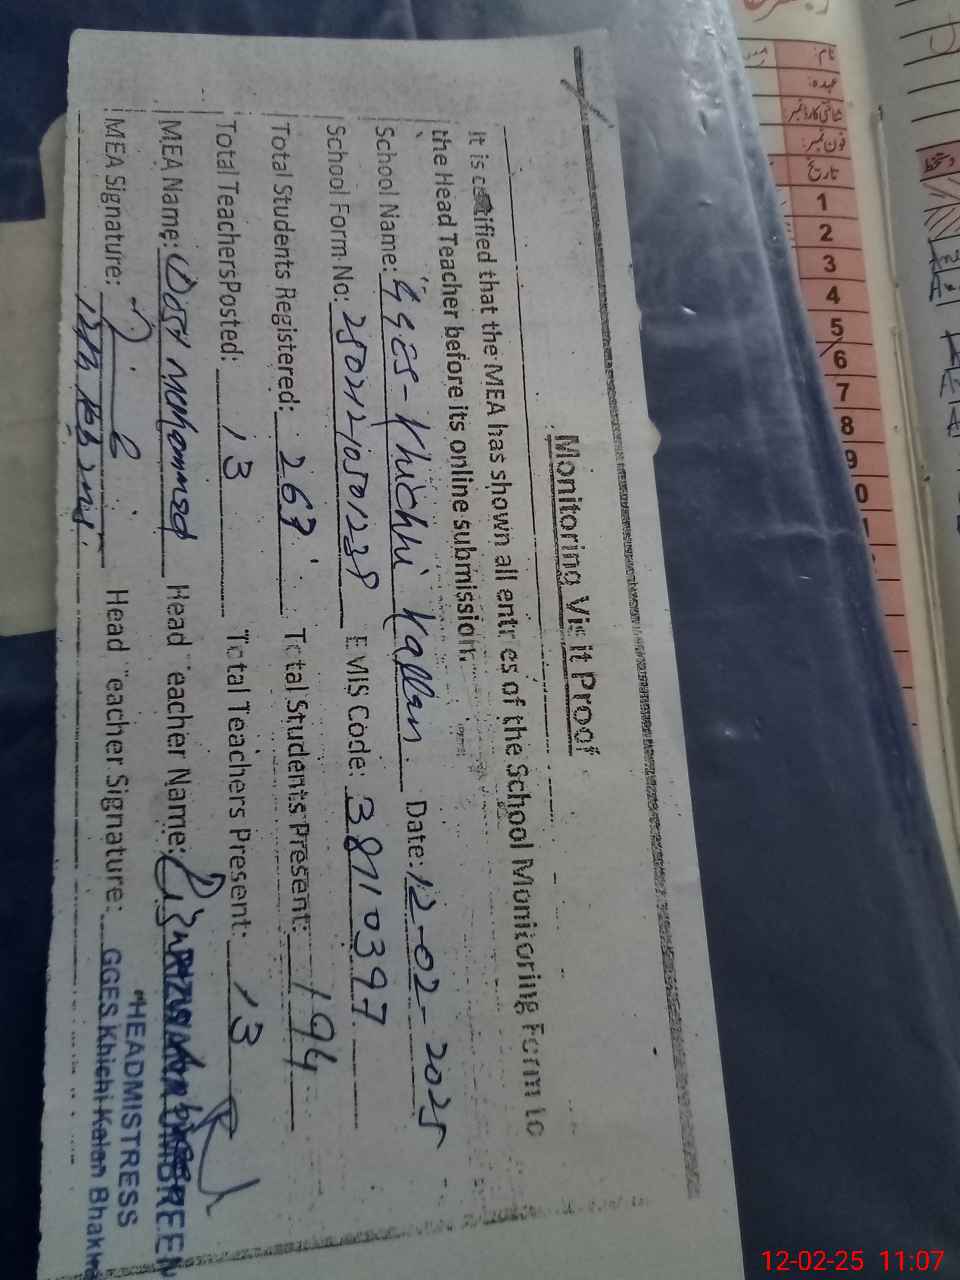 Monitoring Visit Proof
It is certified that the MEA has shown all entries of the School Monitoring Form to
the Head Teacher before its online submission.
School Name: GGES-Khichhi Kallan. Date: 12-02-2025
School Form No: EMIS Code: 38710397
Total Students Registered: 263 Total Students Present: 194
Total Teachers Posted: 13 Total Teachers Present: 13
MEA Name: Dost Muhammad Head Teacher Name:
MEA Signature: Head Teacher Signature:
HEADMISTRESS
GGES Khichi Kalan
نام:
عہدہ:
شناختی کارڈ نمبر:
فون نمبر:
تاریخ
1
2
3
4
5
6
7
8
9
دستخط
12-02-25 11:07